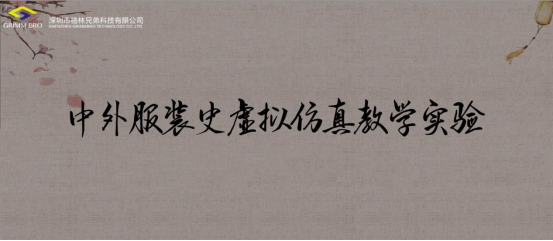 GRIMM BRO
深圳市格林兄弟科技有限公司
中外服装史虚拟仿真教学实验